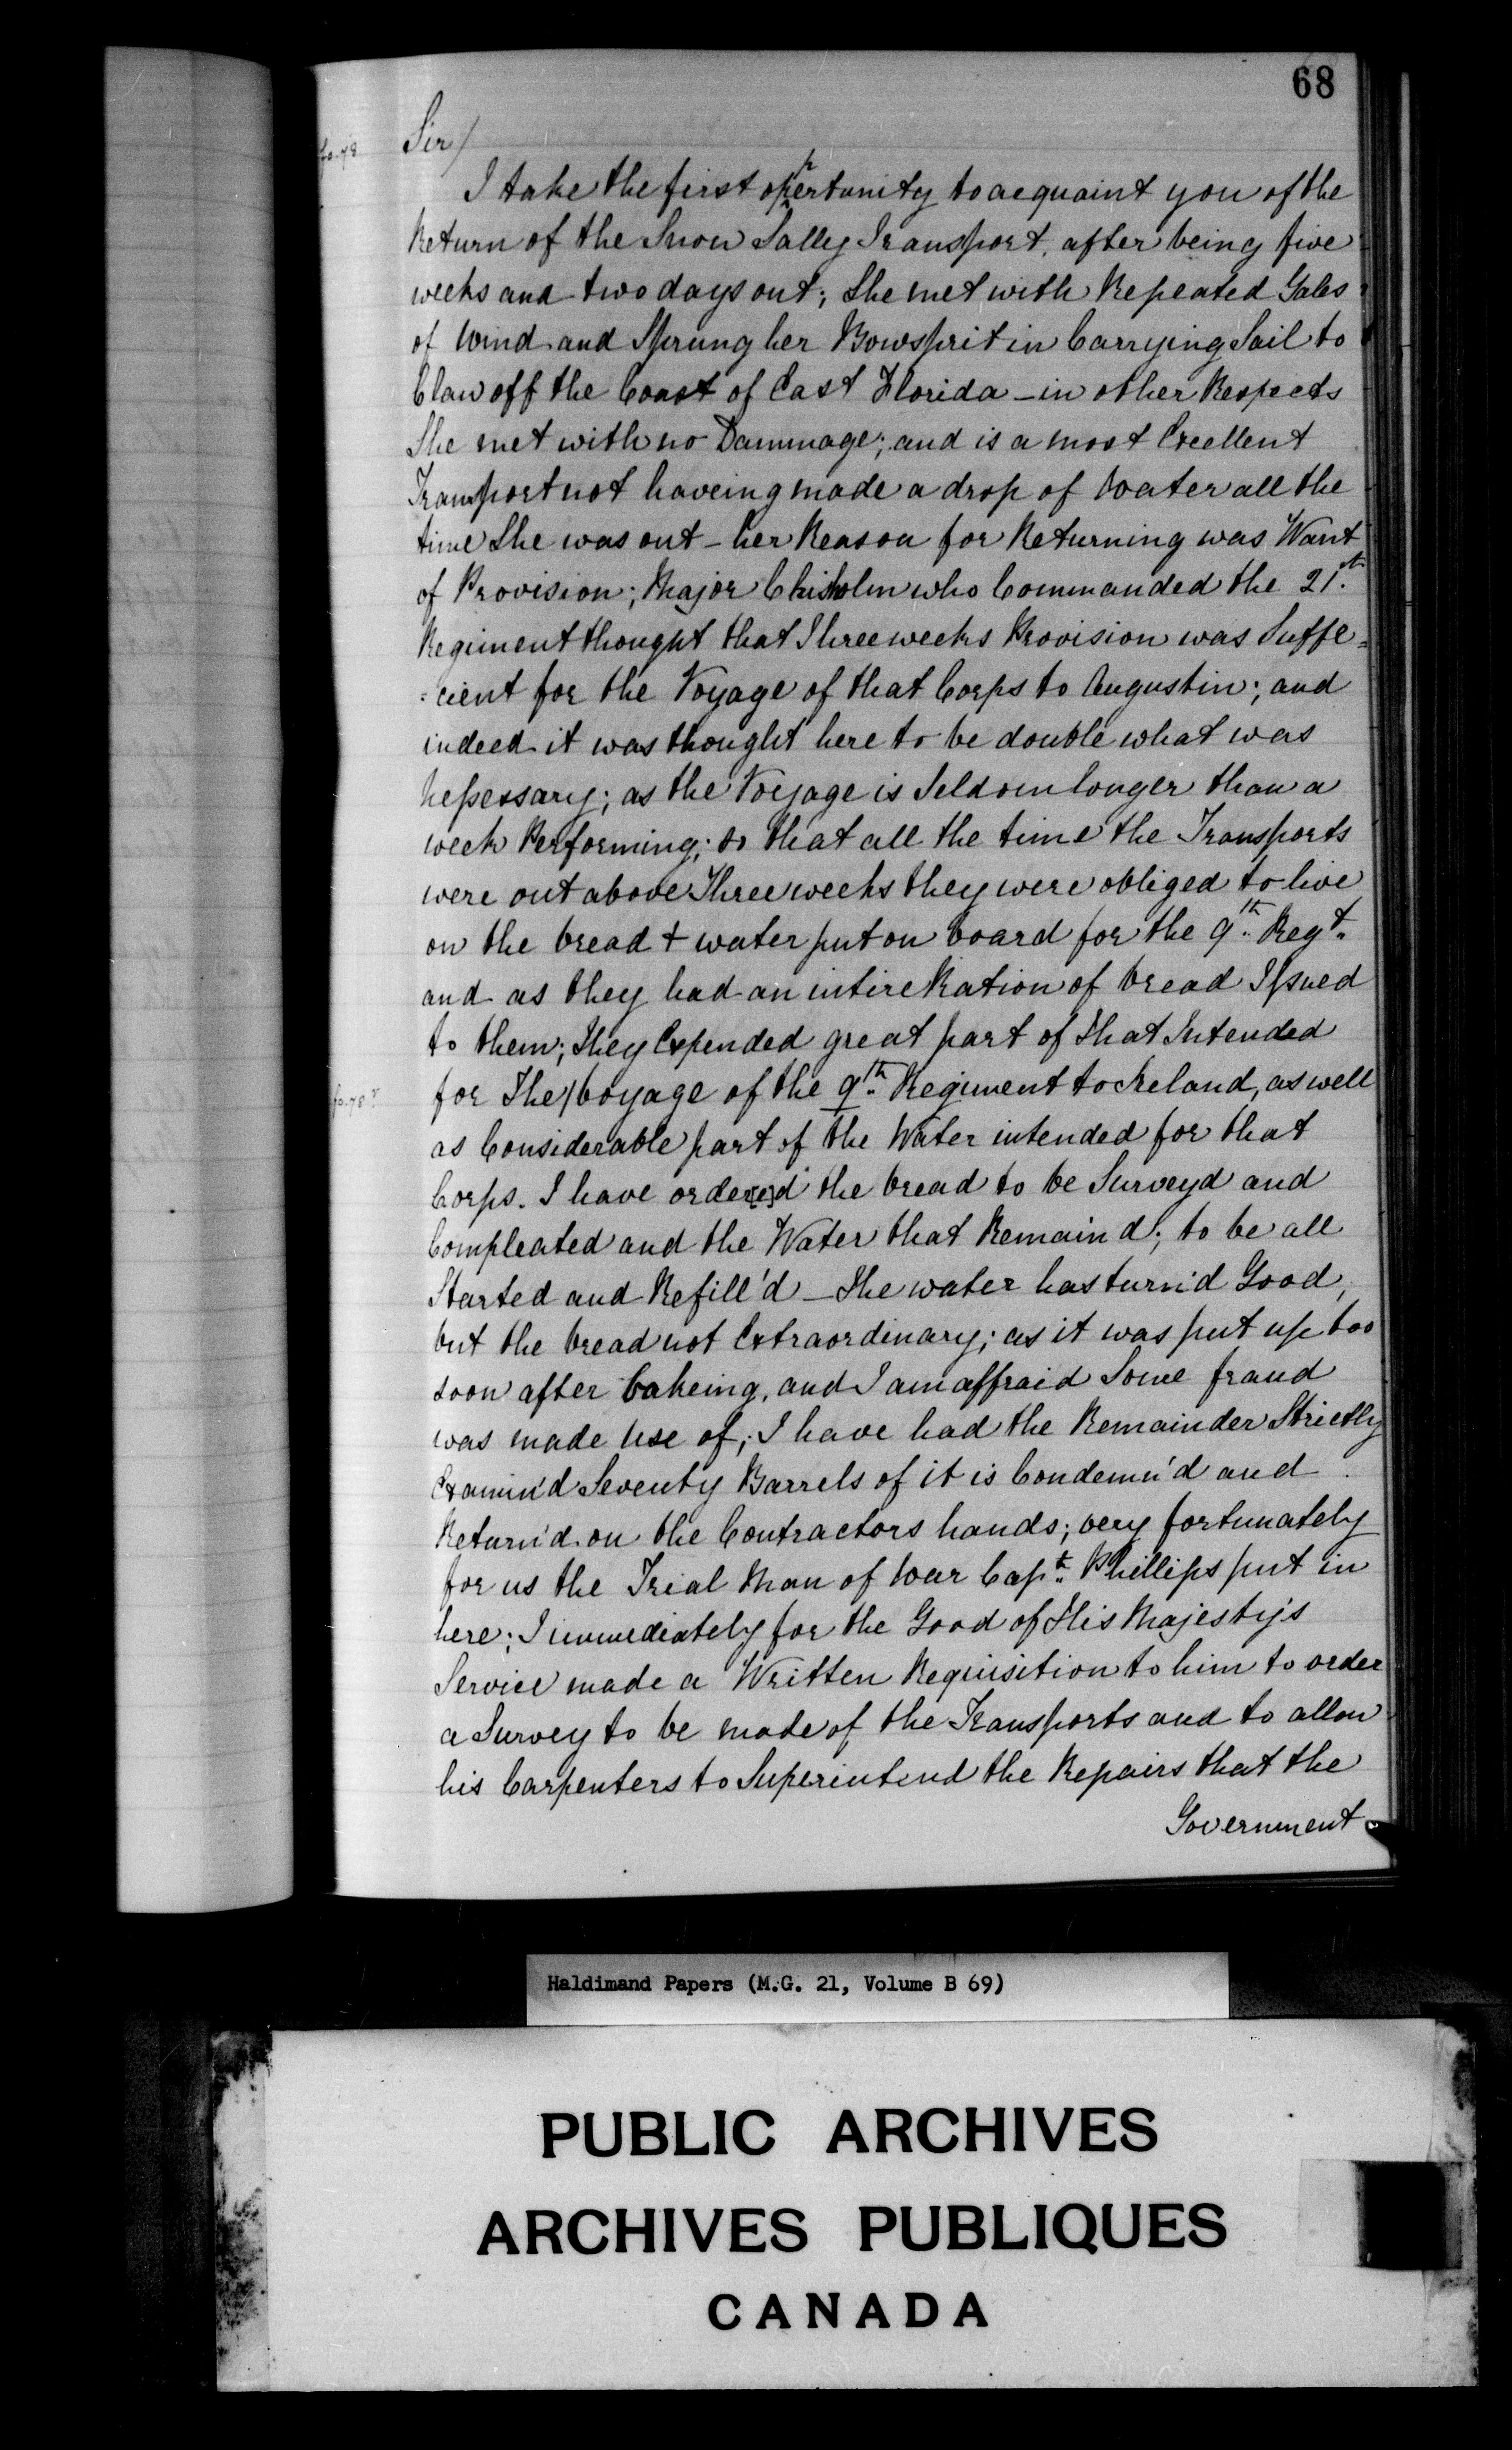 68
fo. 78
Sir/
I take the first oppertunity to acquaint you of the
Return of the Snow Salley Transport, after being five
weeks and two days out; She met with Repeated Gales
of Wind and Sprung her Bowsprit in Carrying Sail to
Claw off the Coast of East Florida – in other Respects
She met with no Dammage; and is a most Excellent
Transport not haveing made a drop of Water all the
time She was out – her Reason for Returning was Want
of Provision; Major Chisholm who Commanded the 21.st
Regiment thought that Three weeks Provision was Suffe=
=cient for the Voyage of that Corps to Augustin; and
indeed it was thought here to be double what was
Nessessary; as the Voyage is Seldom longer than a
week Performing; so that all the time the Transports
were out above Three weeks they were obliged to live
on the bread + water put on board for the 9.th Regt.
and as they had an intire Ration of bread Issued
to them; They Expended great part of that Intended
fo. 78 v
for The/Voyage of the 9.th Regiment to Ireland, as well
as Considerable part of the Water intended for that
Corps. I have order[e]d the bread to be Surveyd and
Compleated and the Water that Remain'd; to be all
Started and Refill'd – The water has turn'd Good,
but the bread not Extraordinary; as it was put up too
soon after bakeing, and I am affraid Some fraud
was made use of; I have had the Remainder Strictly
Examin'd Seventy Barrels of it is Condemn'd and
Return'd on the Contractors hands; very fortunately
for us the Trial Man of War Capt. Phillips put in
here; I immediately for the Good of His Majesty's
Service made a Written Requisition to him to order
a Survey to be made of the Transports and to allow
his Carpenters to Superintend the Repairs that the
Government
Haldimand Papers (M.G. 21, Volume B 69)
PUBLIC ARCHIVES
ARCHIVES PUBLIQUES
CANADA